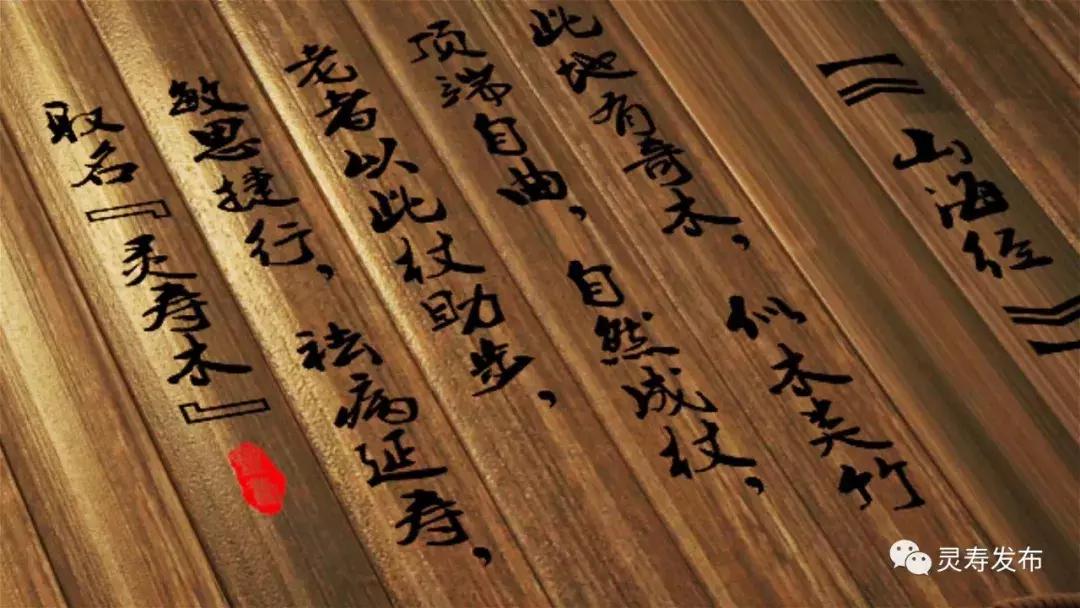 《山海经》
此地有奇木，似木类竹
顶端自曲，自然成杖，
老者以此杖助步，
敏思捷行，祛病延寿，
取名『灵寿木』
灵寿发布